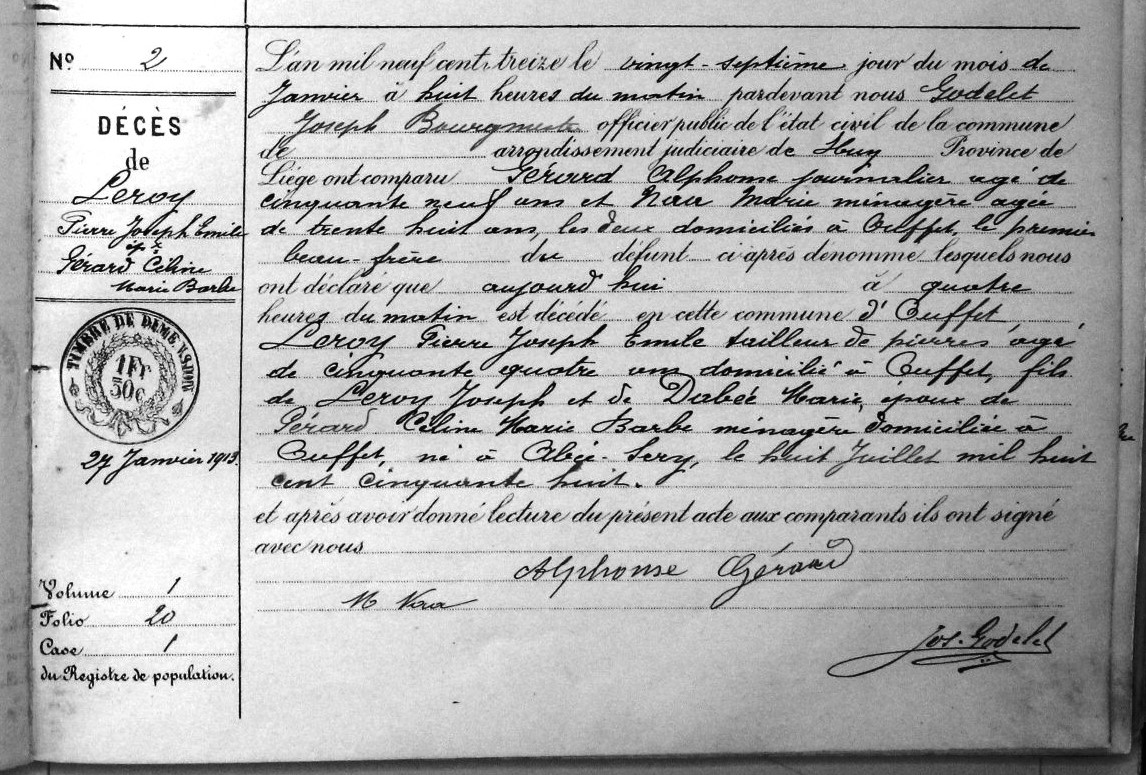 Nº 2
DÉCÈS
de
Leroy
Pierre Joseph Emile
épx
Gérard Céline
Marie Barbe
TIMBRE DE DIMENSION
1FR
30C
27 Janvier 1913
Volume 1
Folio 20
Case 1
du Registre de population.
L'an mil neuf cent treize le vingt-septième jour du mois de
Janvier à huit heures du matin pardevant nous Godelet
Joseph Bourgmestre officier public de l'état civil de la commune
de arrondissement judiciaire de Huy Province de
Liége ont comparu Gérard Alphonse journalier agé de
cinquante neuf ans et Marie ménagère agée
de trente huit ans, les deux domiciliés à Ouffet, le premier
beau-frère du défunt ci après dénommé lesquels nous
ont déclaré que aujourd'hui à quatre
heures du matin est décédé en cette commune d'Ouffet,
Leroy Pierre Joseph Emile tailleur de pierres agé
de cinquante quatre ans domicilié à Ouffet, fils
de Leroy Joseph et de Dabée Marie, époux de
Gérard Céline Marie Barbe ménagère domiciliée à
Ouffet, né à Abée-Scry, le huit Juillet mil huit
cent cinquante huit.
et après avoir donné lecture du présent acte aux comparants ils ont signé
avec nous
Alphonse Gérard
M
Jos. Godelet